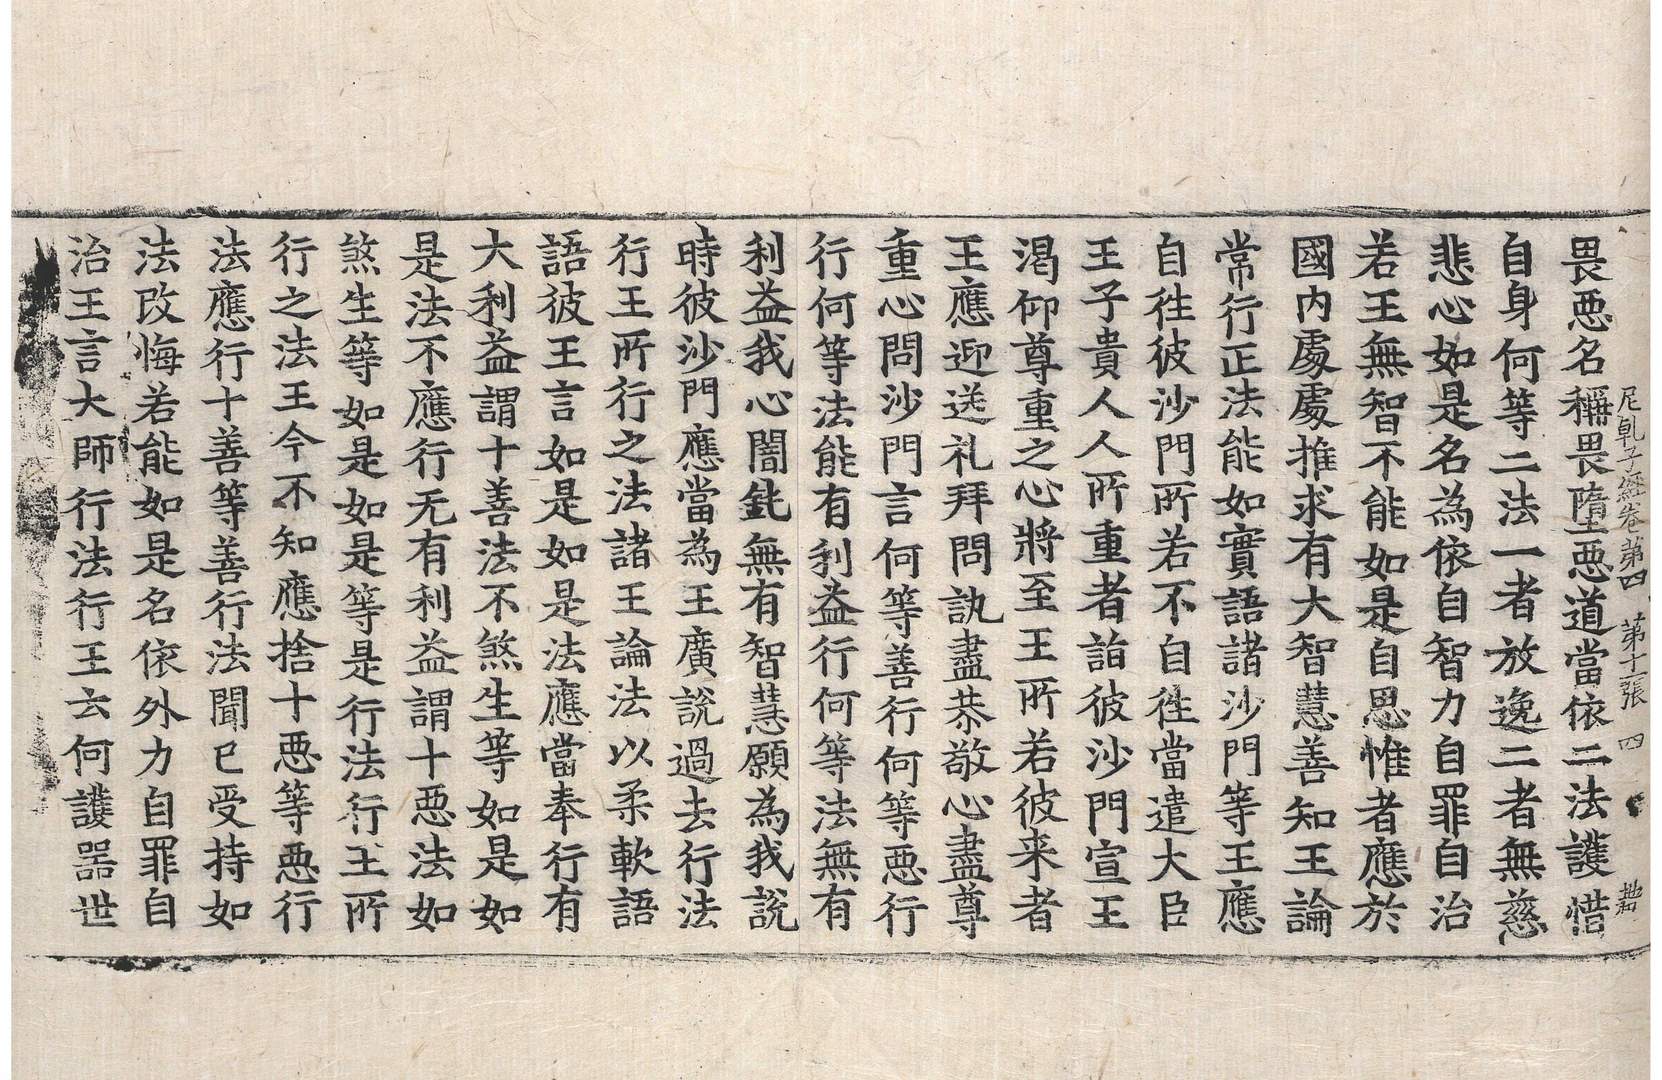 尼乾子經卷第四 第十二張 四
畏惡名稱畏墮惡道當依二法護惜
自身何等二法一者放逸二者無慈
悲心如是名為依自智力自罪自治
若王無智不能如是自思惟者應於
國內處處推求有大智慧善知王論
常行正法能如實語諸沙門等王應
自往彼沙門所若不自往當遣大臣
王子貴人人所重者詣彼沙門宣王
渴仰尊重之心將至王所若彼来者
王應迎送礼拜問訊盡恭敬心盡尊
重心問沙門言何等善行何等惡行
行何等法能有利益行何等法無有
利益我心闇鈍無有智慧願為我說
時彼沙門應當為王廣說過去行法
行王所行之法諸王論法以柔軟語
語彼王言如是如是法應當奉行有
大利益謂十善法不煞生等如是如
是法不應行无有利益謂十惡法如
煞生等如是如是等是行法行王所
行之法王今不知應捨十惡等惡行
法應行十善等善行法聞已受持如
法改悔若能如是名依外力自罪自
治王言大師行法行王云何護器世